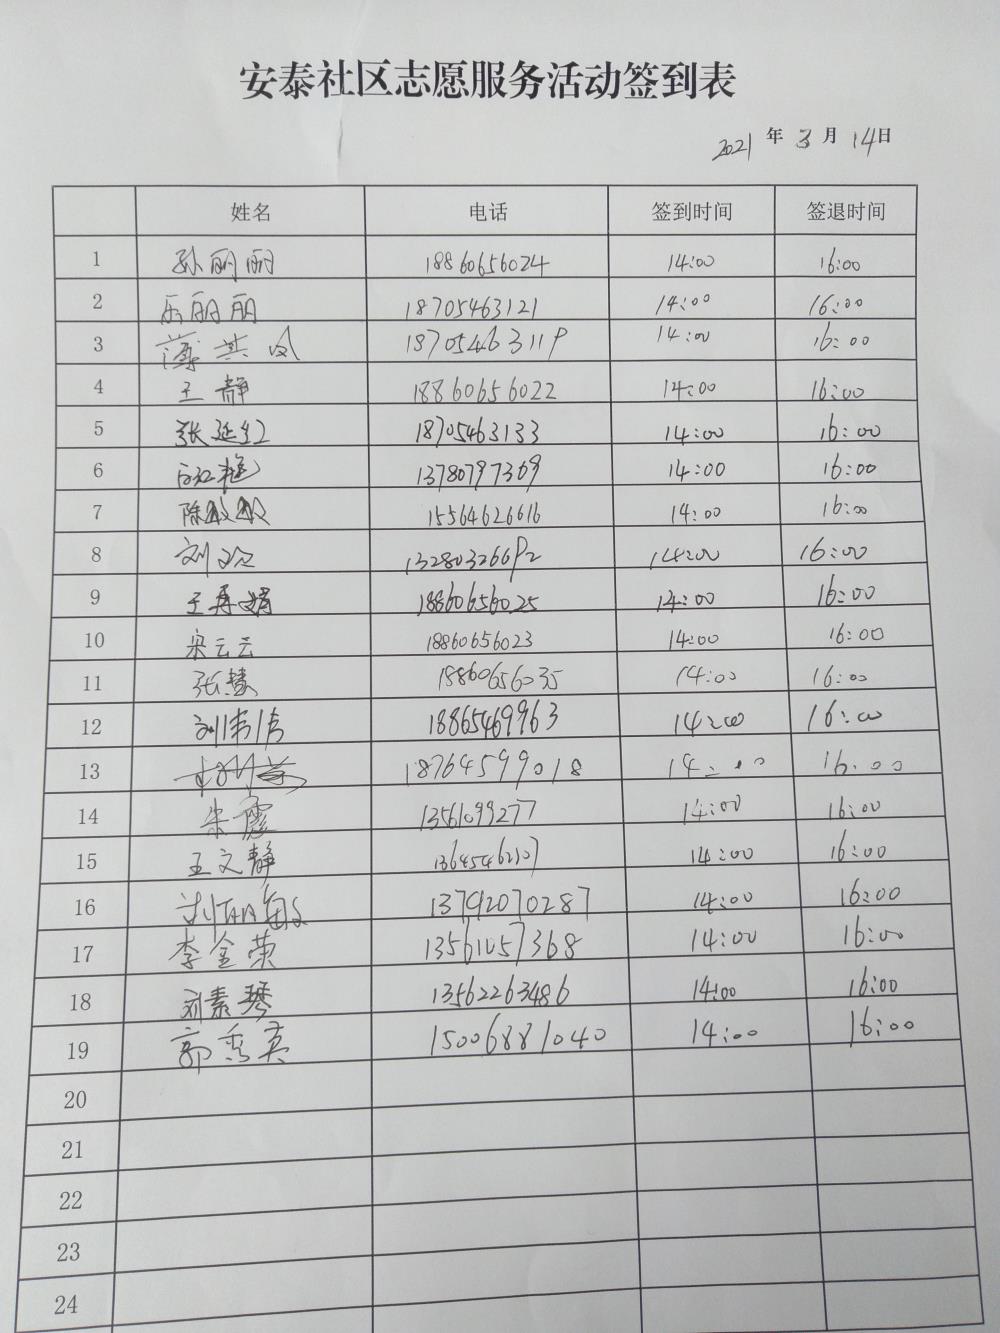 安泰社区志愿服务活动签到表
2021 年 3 月 14日
姓名 电话 签到时间 签退时间
1 孙丽丽 18860656024 14:00 16:00
2 丽丽 18705463121 14:00 16:00
3 薄其凤 1870546311 14:00 16:00
4 王静 18860656022 14:00 16:00
5 张延红 18705463133 14:00 16:00
6 13780797369 14:00 16:00
7 陈敏敏 15564626616 14:00 16:00
8 刘欢 14:00 16:00
9 王再娟 18860656025 14:00 16:00
10 宋云云 18860656023 14:00 16:00
11 张慧 18860656035 14:00 16:00
12 刘伟倩 18865469963 14:00 16:00
13 18764599018 14:00 16:00
14 朱霞 13561099277 14:00 16:00
15 王文静 14:00 16:00
16 刘丽敏 13792070287 14:00 16:00
17 李金荣 13561057368 14:00 16:00
18 刘素琴 13562263486 14:00 16:00
19 郭秀英 15006881040 14:00 16:00
20
21
22
23
24